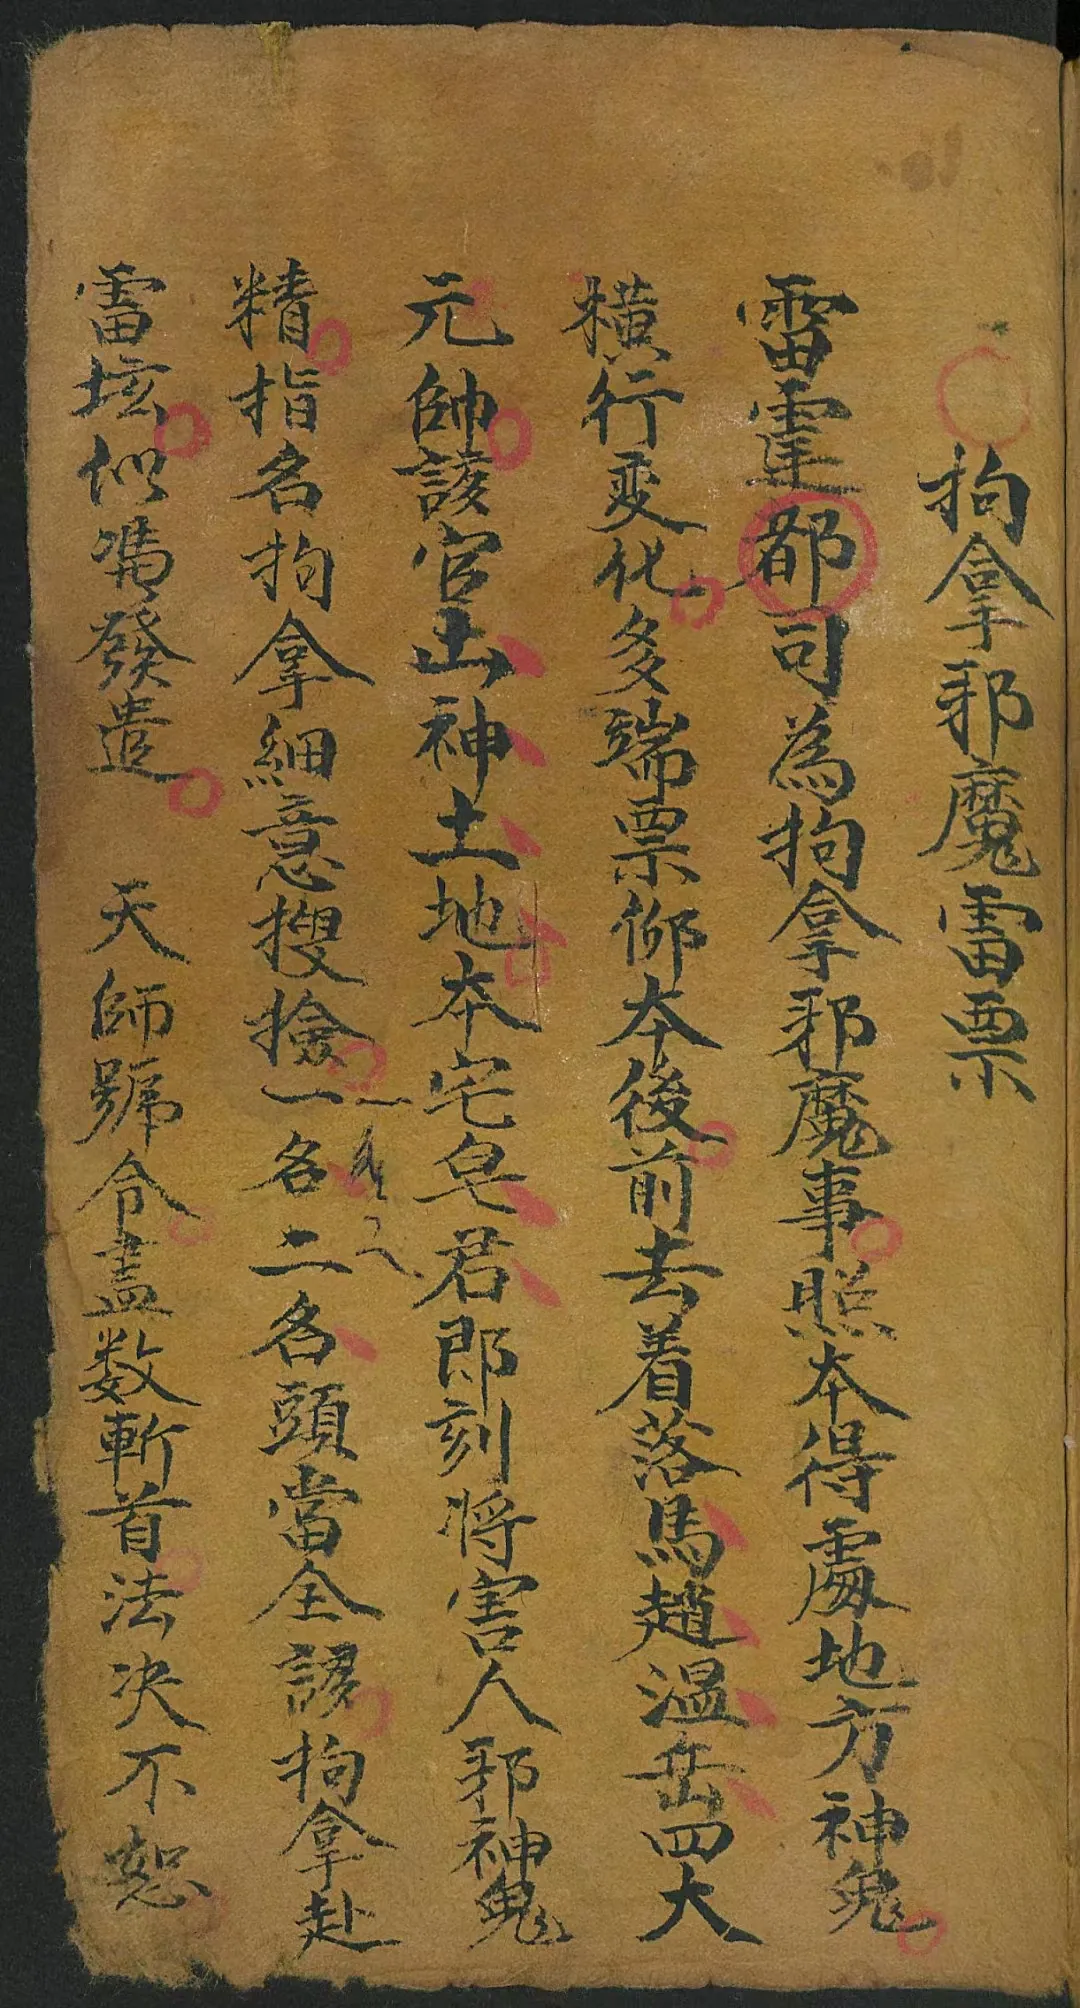 拘拿邪魔雷票
雷霆都司為拘拿邪魔事照本得處地方神鬼
横行变化多端票仰本後前去着落馬趙温岳四大
元帥該官山神土地本宅皂君即刻将害人邪神鬼
精指名拘拿細意搜撿一名二名頭當全該拘拿赴
雷坛似慿發遣 天師號令盡数斬首法决不恕